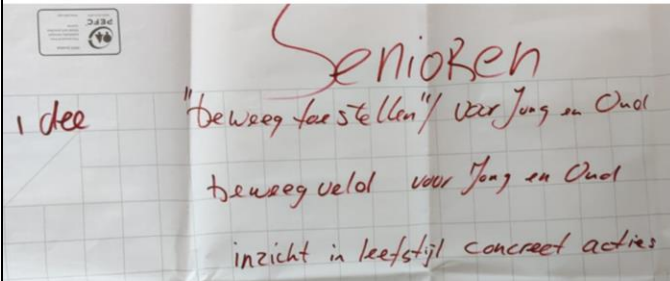 Senioren
idee "beweeg toestellen"/ voor Jong en Oud
beweegveld voor Jong en Oud
inzicht in leefstijl concreet acties
PEFC